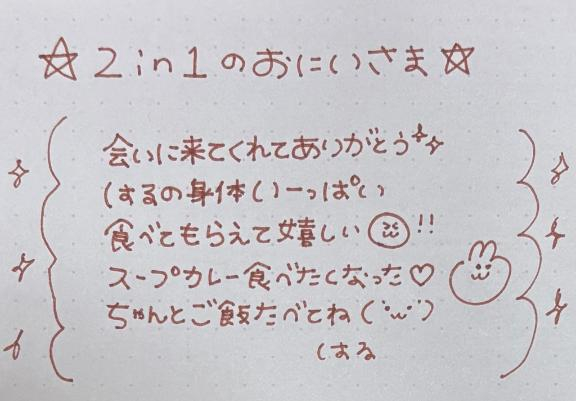 ☆2in1のおにいさま☆
会いに来てくれてありがとう
しするの身体いーっぱい
食べてもらえて嬉しい!!
スープカレー食べたくなった♡
ちゃんとご飯たべてね(˙꒳˙)
しする